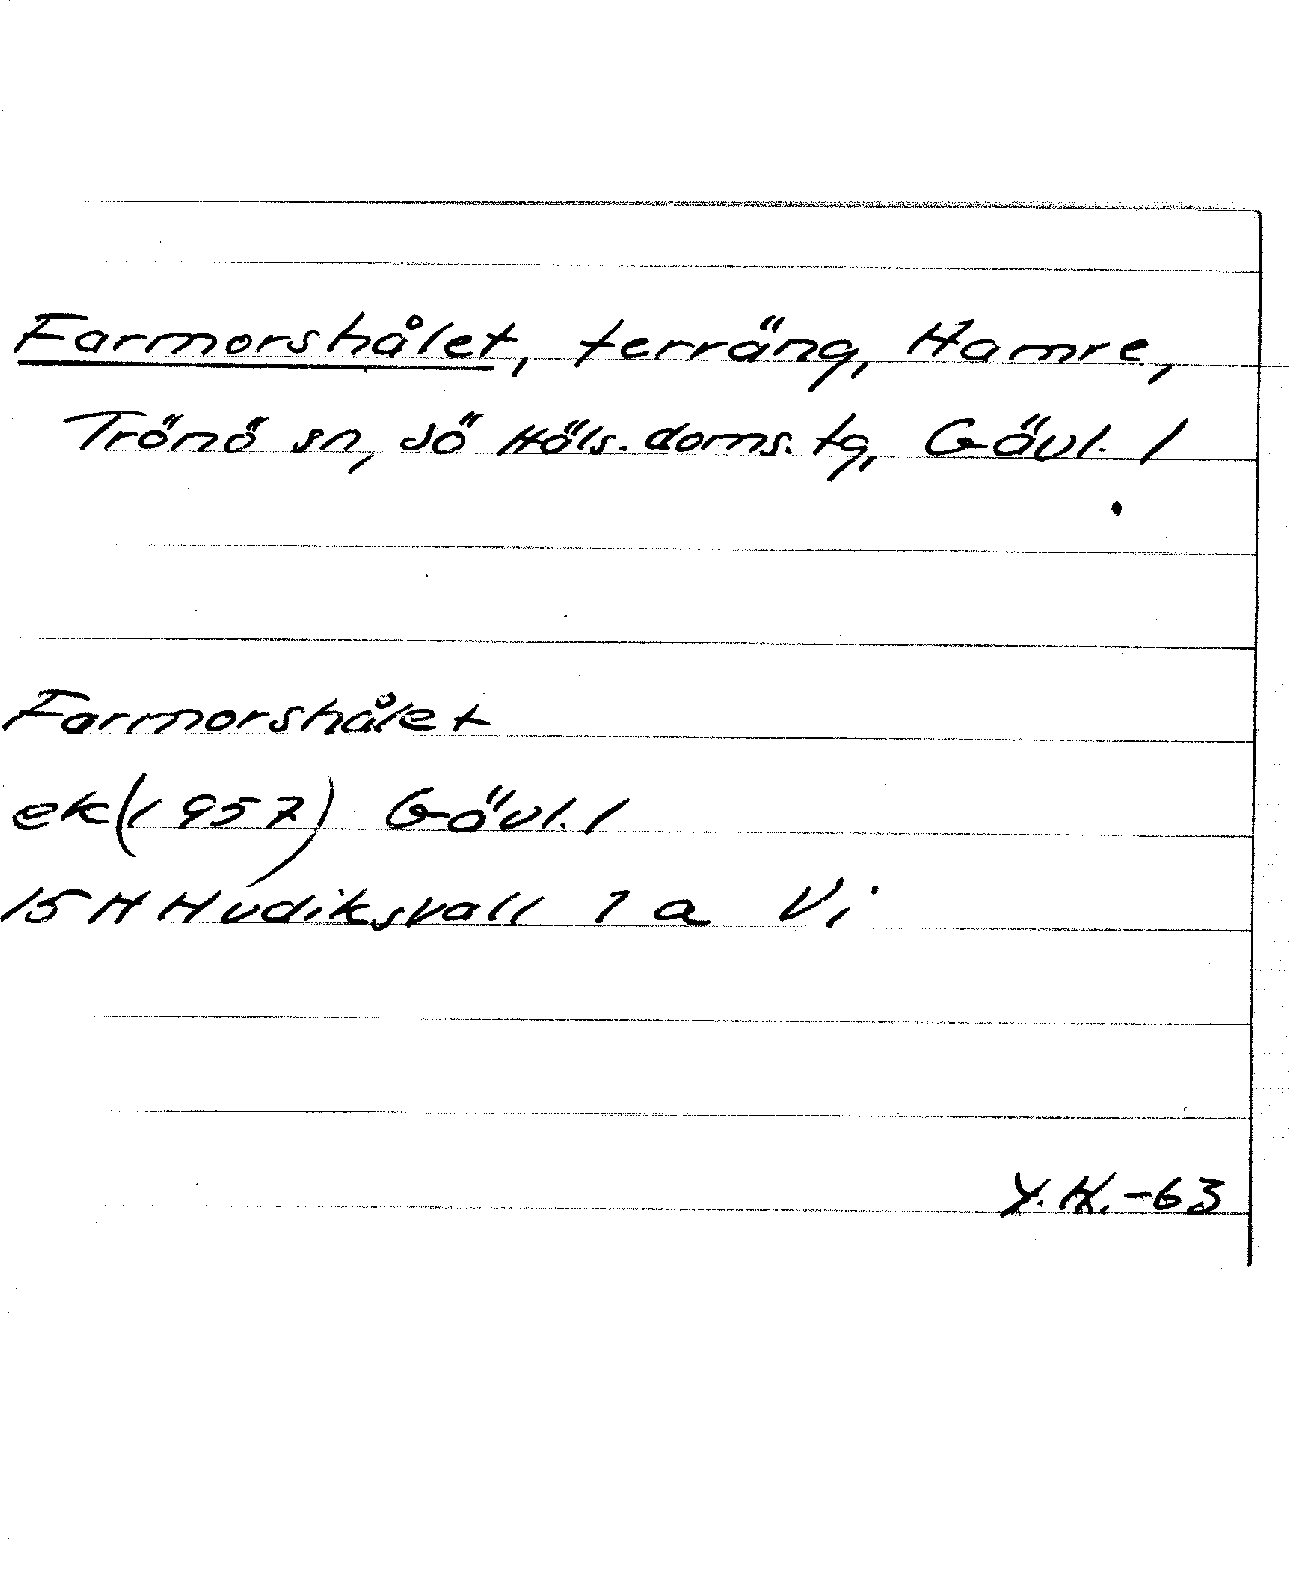 Farmorshålet, terräng, Hamre,
Trönö sn, Sö Häls. doms. tg, Gävl. l
Farmorshålet
ek (1957) Gävl. l
15 H Hudiksvall 7 a Vi
Y.H. -63